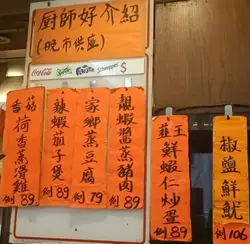 廚師好介紹
(晚市供应)
Coca-Cola
Schweppes
$
香菇荷香蒸滑雞
例89
辣蝦茄子煲
例89
家鄉蒸豆腐
例79
靚蝦醬蒸豬肉
例89
韮王鮮蝦仁炒蛋
例89
椒鹽鮮魷
例106